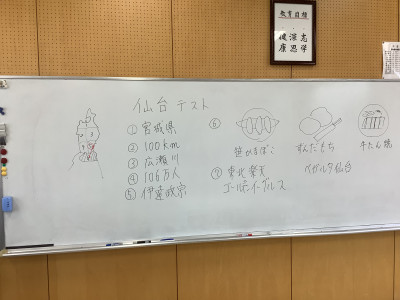 教育目標
仙台テスト
① 宮城県
② 100km
③ 広瀬川
④ 106万人
⑤ 伊達政宗
⑥
笹かまぼこ
ずんだもち
牛たん焼
⑦ 東北楽天
ゴールデンイーグルス
ベガルタ仙台